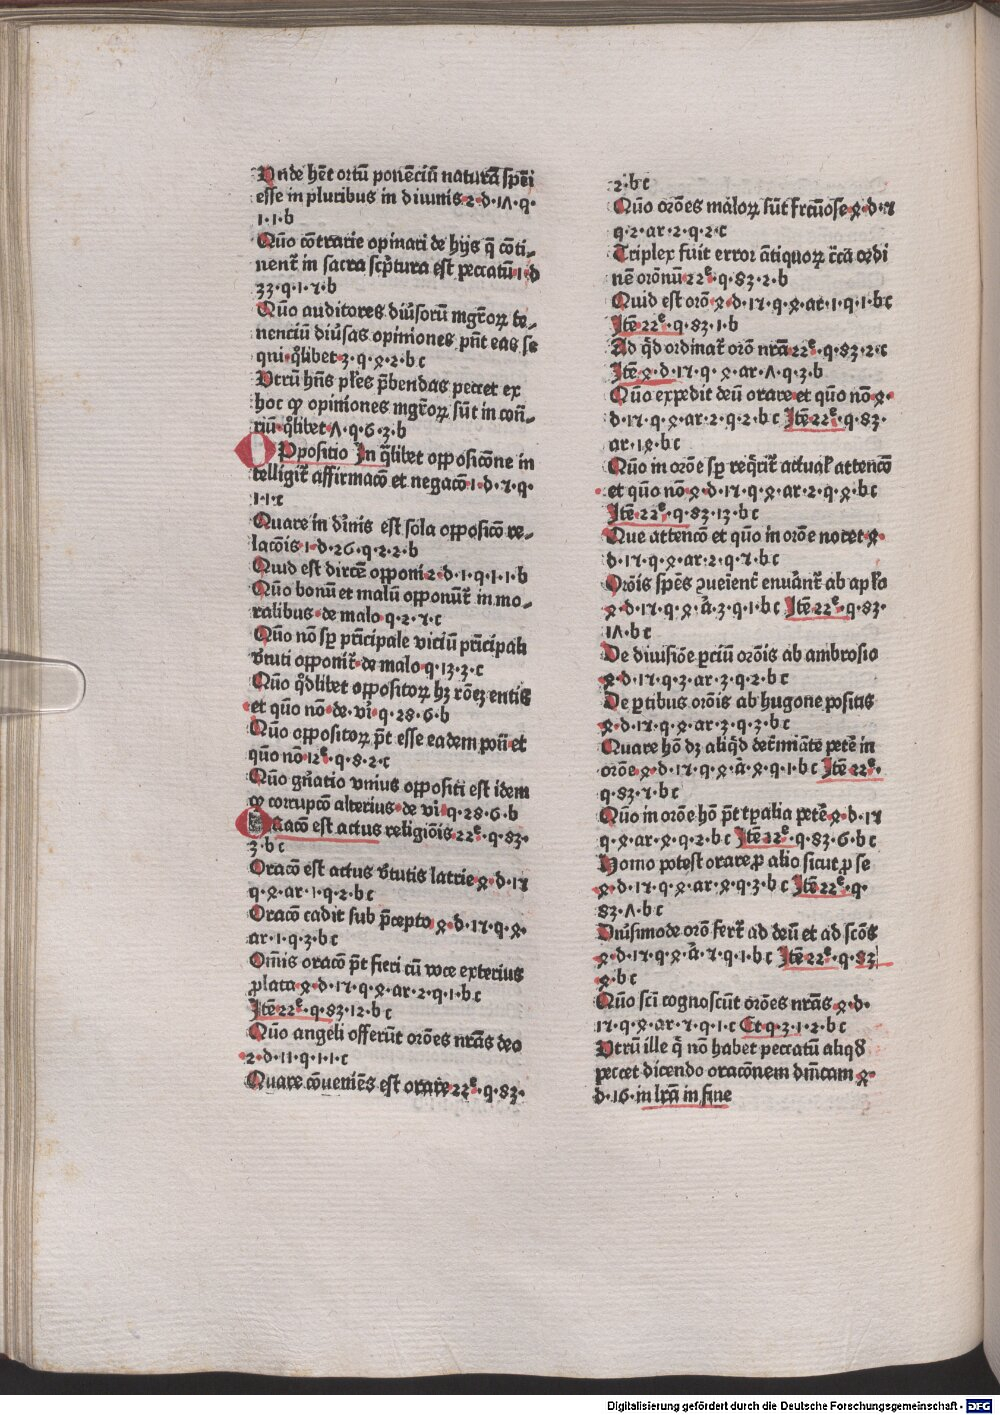 Unde hēt ortū ponēciū naturā spēi
esse in pluribus in diuinis·2·d·17·q·
1·1·b
Quō cōtrarie opinari de hijs q̄ cōti-
nent̄ in sacra scptura est peccatū·1·d
33·q·1·7·b
Quō auditores diūsorū mgr̄oꝝ te-
nenciū diūsas opiniones pn̄t eas se
qui·qͦlibet·3·q·ꝯ·2·b c
Utrū hn̄s ples p̄bendas peccet ex
hoc ꝙ opiniones mgr̄oꝝ sūt in cōtr̄-
riū·qͦlibet·Λ·q·6·3·b
OPpositio In q̄libet opposicōne in
telligit̄ affirmacō et negacō·1·d·7·q·
1·1·c
Quare in diīnis est sola opposicō re-
lacōis·1·d·26·q·2·2·b
Quid est dircte opponi·2·d·1·q·1·1·b
Quō bonū et malū opponūt̄ in mo-
ralibus·de malo·q·2·7·c
Quō nō sp prīcipale viciū prīcipali
v̄tuti opponit̄·de malo·q·13·3·c
Quō qͦdlibet oppositoꝝ hꝫ rōeꝫ entis
et quō nō·de·vī·q·28·6·b
Quō oppositoꝝ pt̄ esse eadem poñ et
quō nō·12ᵉ·q·8·2·c
Quō gn̄atio vnius oppositi est idem
ꝙ corrupcō alterius·de vī·q·28·6·b
Oracō est actus religiōis·22ᵉ·q·83·
3·b c
Oracō est actus v̄tutis latrie·ꝯ·d·17
q·ꝯ·ar·1·q·2·b c
Oracō cadit sub p̄cepto·ꝯ·d·17·q·ꝯ·
ar·1·q·3·b c
Om̄is oracō pt̄ fieri cū voce exterius
ꝓlata·ꝯ·d·17·q·ꝯ·ar·2·q·1·b c
Itē·22ᵉ·q·83·12·b c
Quō angeli offerūt orōes nrās deo
2·d·11·q·1·1·c
Quare cōueniēs est orare·22ᵉ·q·83·
2·b c
Quō orōes maloꝝ sūt frcūose·ꝯ·d·17
q·2·ar·2·q·2·c
Triplex fuit error ātiquoꝝ circa ordi
nē orōnū·22ᵉ·q·83·2·b
Quid est orō·ꝯ·d·17·q·ꝯ·ar·1·q·1·b c
Itē·22ᵉ·q·83·1·b
Ad qͥd ordinat̄ orō nrā·22ᵉ·q·83·2·c
Itē·ꝯ·d·17·q·ꝯ·ar·Λ·q·3·b
Quō expedit deū orare et quō nō·ꝯ·
d·17·q·ꝯ·ar·2·q·2·b c Itē·22ᵉ·q·83·
ar·1ꝯ·b c
Quō in orōe sp reqͥrit̄ actual attencō
et quō nō·ꝯ·d·17·q·ꝯ·ar·2·q·ꝯ·b c
Itē·22ᵉ·q·83·13·b c
Que attencō et quō in orōe nocet·ꝯ·
d·17·q·ꝯ·ar·2·q·7·b c
Orōis spēs ꝯueient̄ enuānt̄ ab aplo
ꝯ·d·17·q·ꝯ·ā·3·q·1·b c Itē·22ᵉ·q·83·
1Λ·b c
De diuisiōe ꝑciū orōis ab ambrosio
ꝯ·d·17·q·3·ar·3·q·2·b c
De ꝑtibus orōis ab hugone positis
ꝯ·d·17·q·ꝯ·ar·3·q·3·b c
Quare hō dꝫ aliqͥd det̄miāte petē in
orōe·ꝯ·d·17·q·ꝯ·ā·ꝯ·q·1·b c Itē·22ᵉ·
q·83·7·b c
Quō in orōe hō pt̄ tꝑalia petē·ꝯ·d·17
q·ꝯ·ar·ꝯ·q·2·b c Itē·22ᵉ·q·83·6·b c
Homo potest orare ꝓ alio sicut ꝓ se
ꝯ·d·17·q·ꝯ·ar·ꝯ·q·3·b c Itē·22ᵉ·q·
83·Λ·b c
Diūsimode orō fert̄ ad deū et ad scōs
ꝯ·d·17·q·ꝯ·ā·7·q·1·b c Itē·22ᵉ·q·83
ꝯ·b c
Quō sci cognoscūt orōes nrās·ꝯ·d·
17·q·ꝯ·ar·7·q·1·c Et·q·3·1·2·b c
Utrū ille qͥ nō habet peccatū aliqd
peccet dicendo oracōnem dn̄icam·ꝯ·
d·16·in lrā in fine
Digitalisierung gefördert durch die Deutsche Forschungsgemeinschaft - DFG